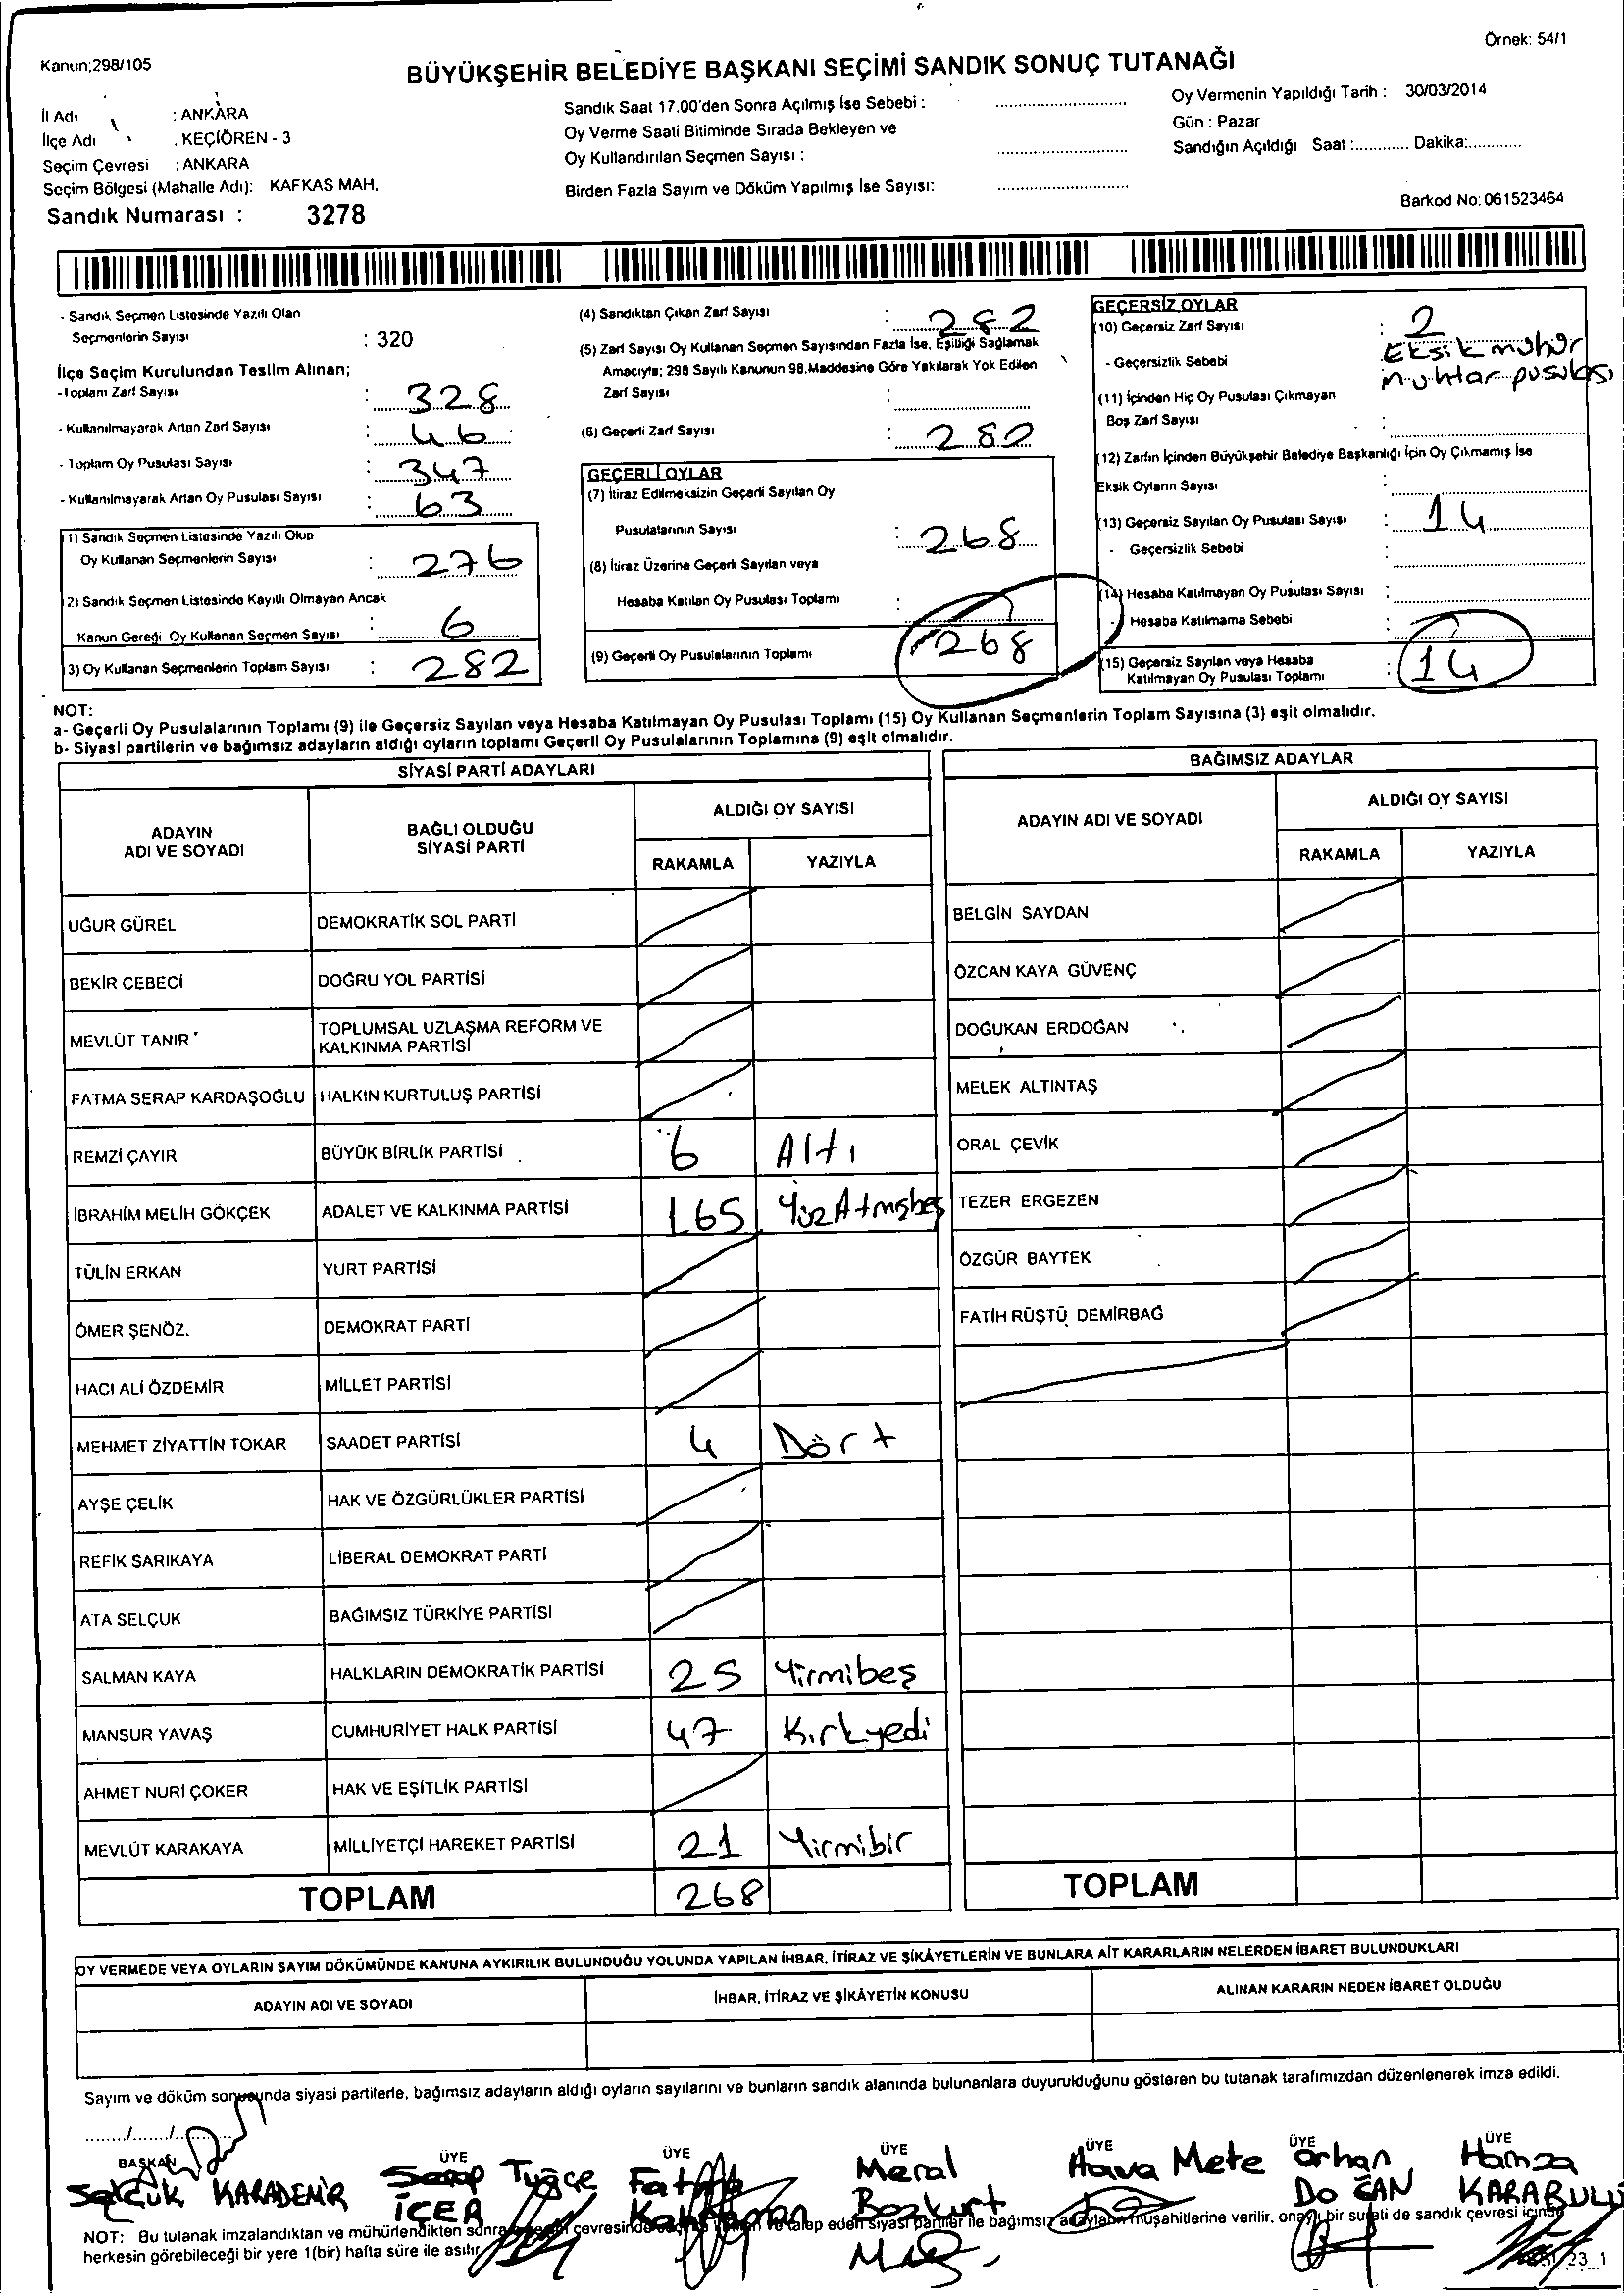 Örnek: 54/1
Kanun;298/105
BÜYÜKŞEHİR BELEDİYE BAŞKANI SEÇİMİ SANDIK SONUÇ TUTANAĞI
İl Adı : ANKARA
İlçe Adı . KEÇİÖREN - 3
Seçim Çevresi : ANKARA
Seçim Bölgesi (Mahalle Adı): KAFKAS MAH.
Sandık Numarası : 3278
Sandık Saat 17.00'den Sonra Açılmış İse Sebebi :
Oy Verme Saati Bitiminde Sırada Bekleyen ve
Oy Kullandırılan Seçmen Sayısı :
Birden Fazla Sayım ve Döküm Yapılmış İse Sayısı:
Oy Vermenin Yapıldığı Tarih : 30/03/2014
Gün : Pazar
Sandığın Açıldığı Saat :............ Dakika:............
Barkod No: 061523464
- Sandık Seçmen Listesinde Yazılı Olan
Seçmenlerin Sayısı : 320
İlçe Seçim Kurulundan Teslim Alınan;
-Toplam Zarf Sayısı : 328
- Kullanılmayarak Artan Zarf Sayısı : 46
- Toplam Oy Pusulası Sayısı : 347
- Kullanılmayarak Artan Oy Pusulası Sayısı : 63
(1) Sandık Seçmen Listesinde Yazılı Olup
Oy Kullanan Seçmenlerin Sayısı : 276
2) Sandık Seçmen Listesinde Kayıtlı Olmayan Ancak
Kanun Gereği Oy Kullanan Seçmen Sayısı : 6
3) Oy Kullanan Seçmenlerin Toplam Sayısı : 282
(4) Sandıktan Çıkan Zarf Sayısı : 282
(5) Zarf Sayısı Oy Kullanan Seçmen Sayısından Fazla İse, Eşitliği Sağlamak
Amacıyla; 298 Sayılı Kanunun 98.Maddesine Göre Yakılarak Yok Edilen
Zarf Sayısı :
(6) Geçerli Zarf Sayısı : 280
GEÇERLİ OYLAR
(7) İtiraz Edilmeksizin Geçerli Sayılan Oy
Pusulalarının Sayısı : 268
(8) İtiraz Üzerine Geçerli Sayılan veya
Hesaba Katılan Oy Pusulası Toplamı :
(9) Geçerli Oy Pusulalarının Toplamı 268
GEÇERSİZ OYLAR
(10) Geçersiz Zarf Sayısı : 2
- Geçersizlik Sebebi Eksik mühür
muhtar pusulası
(11) İçinden Hiç Oy Pusulası Çıkmayan
Boş Zarf Sayısı :
(12) Zarfın İçinden Büyükşehir Belediye Başkanlığı İçin Oy Çıkmamış İse
Eksik Oyların Sayısı :
(13) Geçersiz Sayılan Oy Pusulası Sayısı : 14
- Geçersizlik Sebebi :
(14) Hesaba Katılmayan Oy Pusulası Sayısı :
- Hesaba Katılmama Sebebi :
(15) Geçersiz Sayılan veya Hesaba
Katılmayan Oy Pusulası Toplamı : 14
NOT:
a- Geçerli Oy Pusulalarının Toplamı (9) ile Geçersiz Sayılan veya Hesaba Katılmayan Oy Pusulası Toplamı (15) Oy Kullanan Seçmenlerin Toplam Sayısına (3) eşit olmalıdır.
b- Siyasi partilerin ve bağımsız adayların aldığı oyların toplamı Geçerli Oy Pusulalarının Toplamına (9) eşit olmalıdır.
SİYASİ PARTİ ADAYLARI
ADAYIN
ADI VE SOYADI
BAĞLI OLDUĞU
SİYASİ PARTİ
ALDIĞI OY SAYISI
RAKAMLA YAZIYLA
UĞUR GÜREL DEMOKRATİK SOL PARTİ
BEKİR CEBECİ DOĞRU YOL PARTİSİ
MEVLÜT TANIR TOPLUMSAL UZLAŞMA REFORM VE
KALKINMA PARTİSİ
FATMA SERAP KARDAŞOĞLU HALKIN KURTULUŞ PARTİSİ
REMZİ ÇAYIR BÜYÜK BİRLİK PARTİSİ 6 Altı
İBRAHİM MELİH GÖKÇEK ADALET VE KALKINMA PARTİSİ 165 YüzAtmışbeş
TÜLİN ERKAN YURT PARTİSİ
ÖMER ŞENÖZ. DEMOKRAT PARTİ
HACI ALİ ÖZDEMİR MİLLET PARTİSİ
MEHMET ZİYATTİN TOKAR SAADET PARTİSİ 4 Dört
AYŞE ÇELİK HAK VE ÖZGÜRLÜKLER PARTİSİ
REFİK SARIKAYA LİBERAL DEMOKRAT PARTİ
ATA SELÇUK BAĞIMSIZ TÜRKİYE PARTİSİ
SALMAN KAYA HALKLARIN DEMOKRATİK PARTİSİ 25 Yirmibeş
MANSUR YAVAŞ CUMHURİYET HALK PARTİSİ 47 Kırkyedi
AHMET NURİ ÇOKER HAK VE EŞİTLİK PARTİSİ
MEVLÜT KARAKAYA MİLLİYETÇİ HAREKET PARTİSİ 21 Yirmibir
TOPLAM 268
BAĞIMSIZ ADAYLAR
ADAYIN ADI VE SOYADI
ALDIĞI OY SAYISI
RAKAMLA YAZIYLA
BELGİN SAYDAN
ÖZCAN KAYA GÜVENÇ
DOĞUKAN ERDOĞAN
MELEK ALTINTAŞ
ORAL ÇEVİK
TEZER ERGEZEN
ÖZGÜR BAYTEK
FATİH RÜŞTÜ DEMİRBAĞ
TOPLAM
OY VERMEDE VEYA OYLARIN SAYIM DÖKÜMÜNDE KANUNA AYKIRILIK BULUNDUĞU YOLUNDA YAPILAN İHBAR, İTİRAZ VE ŞİKÂYETLERİN VE BUNLARA AİT KARARLARIN NELERDEN İBARET BULUNDUKLARI
ADAYIN ADI VE SOYADI İHBAR, İTİRAZ VE ŞİKÂYETİN KONUSU ALINAN KARARIN NEDEN İBARET OLDUĞU
Sayım ve döküm sonucunda siyasi partilerle, bağımsız adayların aldığı oyların sayılarını ve bunların sandık alanında bulunanlara duyurulduğunu gösteren bu tutanak tarafımızdan düzenlenerek imza edildi.
......../......../............
BAŞKAN ÜYE ÜYE ÜYE ÜYE ÜYE ÜYE
Selçuk KARADEMİR
Tuğçe
İÇER
Fatma
Kahraman
Meral
Bozkurt
Hava Mete
Orhan
DOĞAN
Hamza
KARABULUT
NOT: Bu tutanak imzalandıktan ve mühürlendikten sonra çevresinde ve talep eden siyasi partiler ile bağımsız adayların müşahitlerine verilir, onaylı bir sureti de sandık çevresi içinde
herkesin görebileceği bir yere 1(bir) hafta süre ile asılır.
23_1